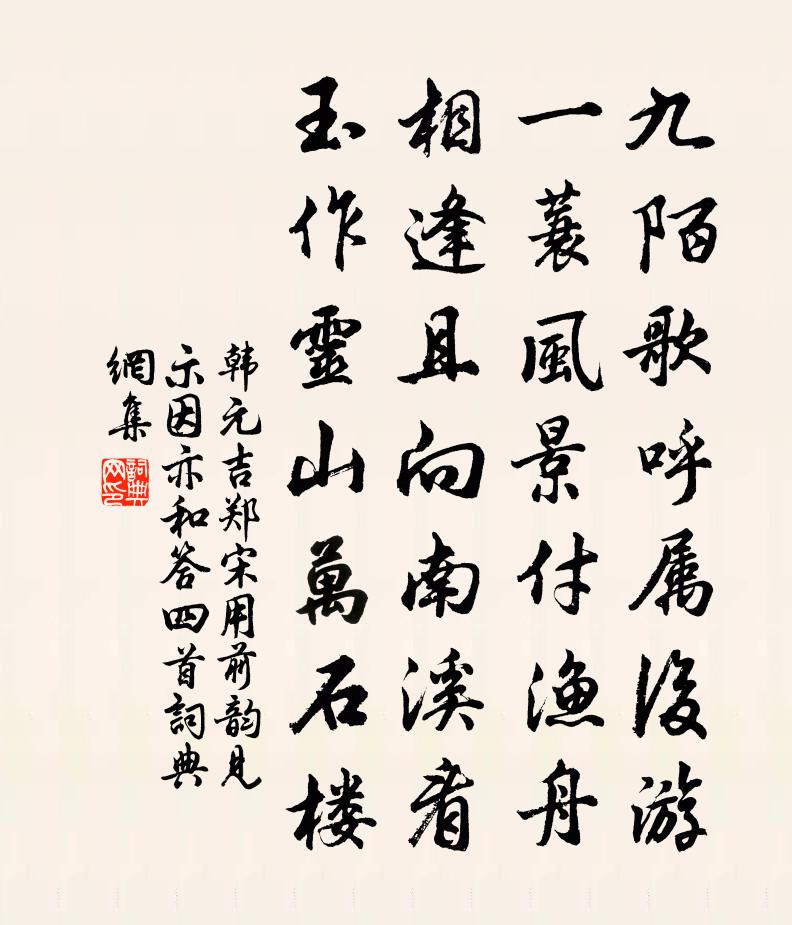 九陌歌呼属後游
一蓑風景付渔舟
相逢且向南溪看
玉作靈山萬石楼
韩元吉郑宋用前韵见
示因亦和答四首詞典
網集
詞典
网印